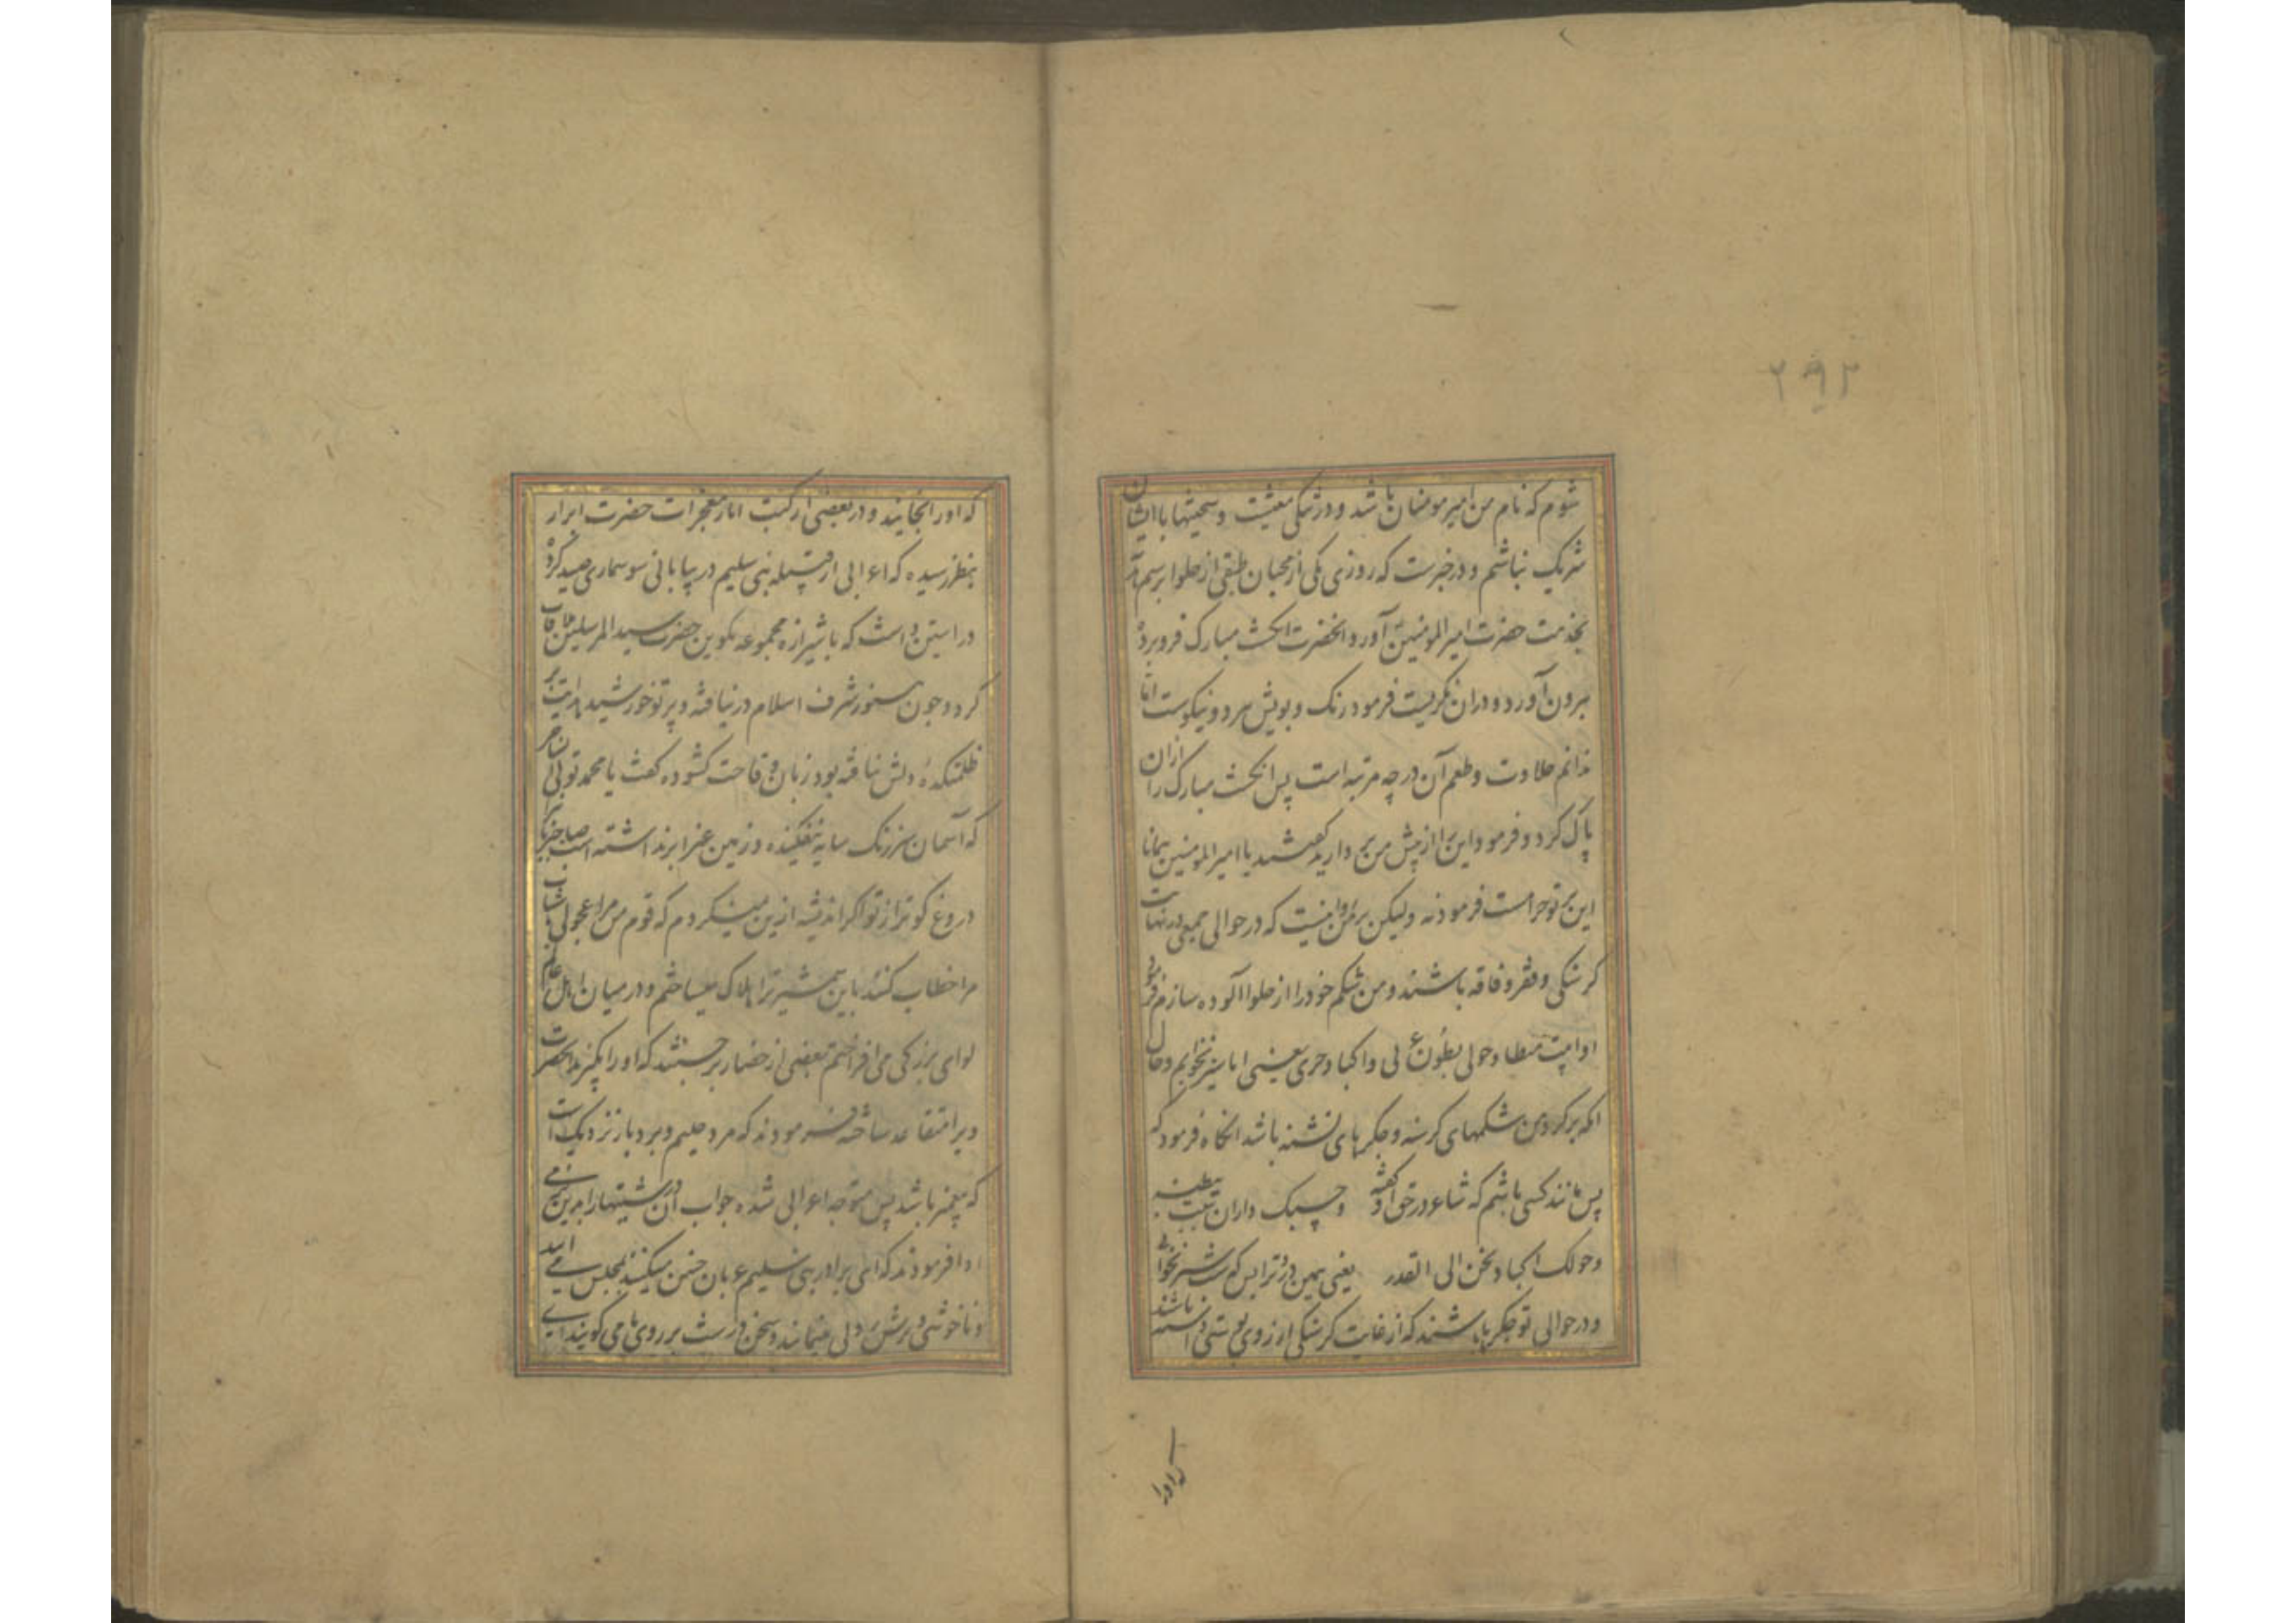 ۲۹۲
شوم که نام من امیر مومنان باشد و در تنکی معیشت و سختیها با ایشان
شریک نباشم و در خبرست که روزی یکی از محبان طبقی از حلوا برسم
بخدمت حضرت امیر المومنین آورد آنحضرت انکشت مبارک فرو برده
بیرون آورد و در آن نکریست فرمود رنک و بویش هر دو نیکوست اما
ندانم حلاوت و طعم آن در چه مرتبه است پس انکشت مبارک را ازان
پاک کرد و فرمود این را از پیش من بردارید کفتند یا امیر المومنین همانا
این بر تو حرامست فرمود نه ولیکن بر من روا نیست که در حوالی جمعی در نهایت
کرسنکی و فقر و فاقه باشند و من شکم خود را از حلوا آلوده سازم فرمود
او ابیت مبطانا و حولی بطون غرثی و اکباد حری یعنی ایا سیر بخوابم و حال
انکه بر کرد من شکمهای کرسنه و جکرهای تشنه باشد انکاه فرمود که
پس مانند کسی باشم که شاعر در حق او کفته وحسبک داء ان تبیت ببطنة
وحولک اکباد تحن الی القد یعنی همین درد ترا بس که سیر بخوابی
و در حوالی تو جکرها باشند که از غایت کرسنکی ارزوی پوستی داشته باشند
که اورا
که اورا نجایند و در بعضی از کتب اثار معجزات حضرت ابرار
بنظر رسیده که اعرابی از قبیله بنی سلیم در بیابانی سوسماری صید کرده
در استین داشت که با شیرازه مجموعه تکوین حضرت سید المرسلین ملاقات
کرد و چون هنوز شرف اسلام در نیافته و پرتو خورشید هدایت بر
ظلمتکده دلش نتافته بود زبان وقاحت کشوده کفت یا محمد توئی
که آسمان سبز رنک سایه نیفکنده و زمین غبرا بر نداشته است صاحب
دروغ کوتر از تو اکر اندیشه ازین نمیکردم که قوم من مرا عجول
مرا خطاب کنند باین شمشیر ترا هلاک میساختم و در میان اهل عالم
لوای بزرکی می افراختم بعضی از حضار برجستند که اورا بکیرند آنحضرت
ویرا متقاعد ساخته فرمودند که مرد حلیم و بردبار نزدیکست
که پیغمبر باشد پس متوجه اعرابی شده جواب آن درشتیها را بدین نرمی
ادا فرمودند که ای برادر بنی سلیم عربان چنین میکنند بمجلس می آیند
و ناخوشی و ترش روئی مینمایند و سخن درشت بر روی ما می کویند ای